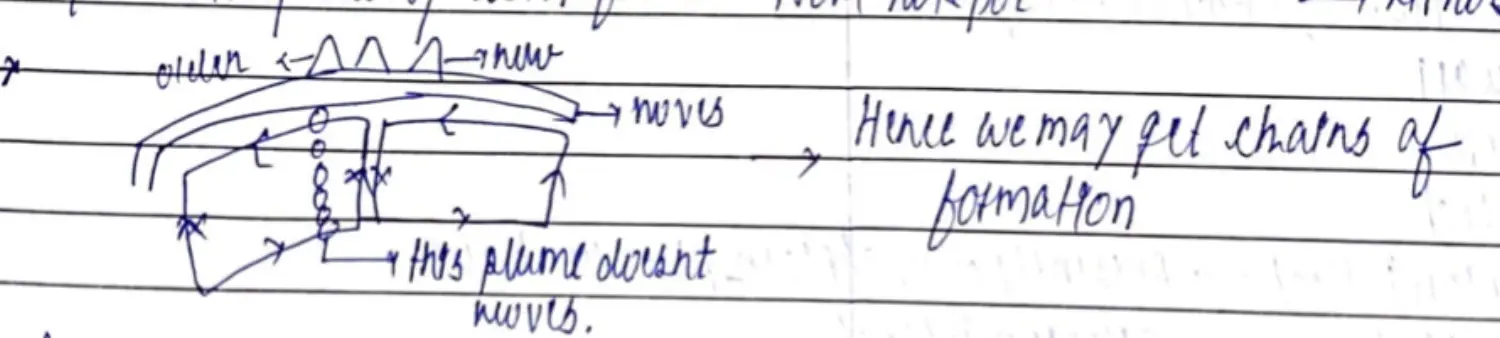 older
new
moves
Hence we may get chains of
formation
this plume doesnt
moves.